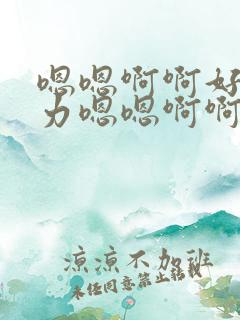 嗯嗯啊啊好
力嗯嗯啊啊
凉凉不加班
未经同意禁止转载